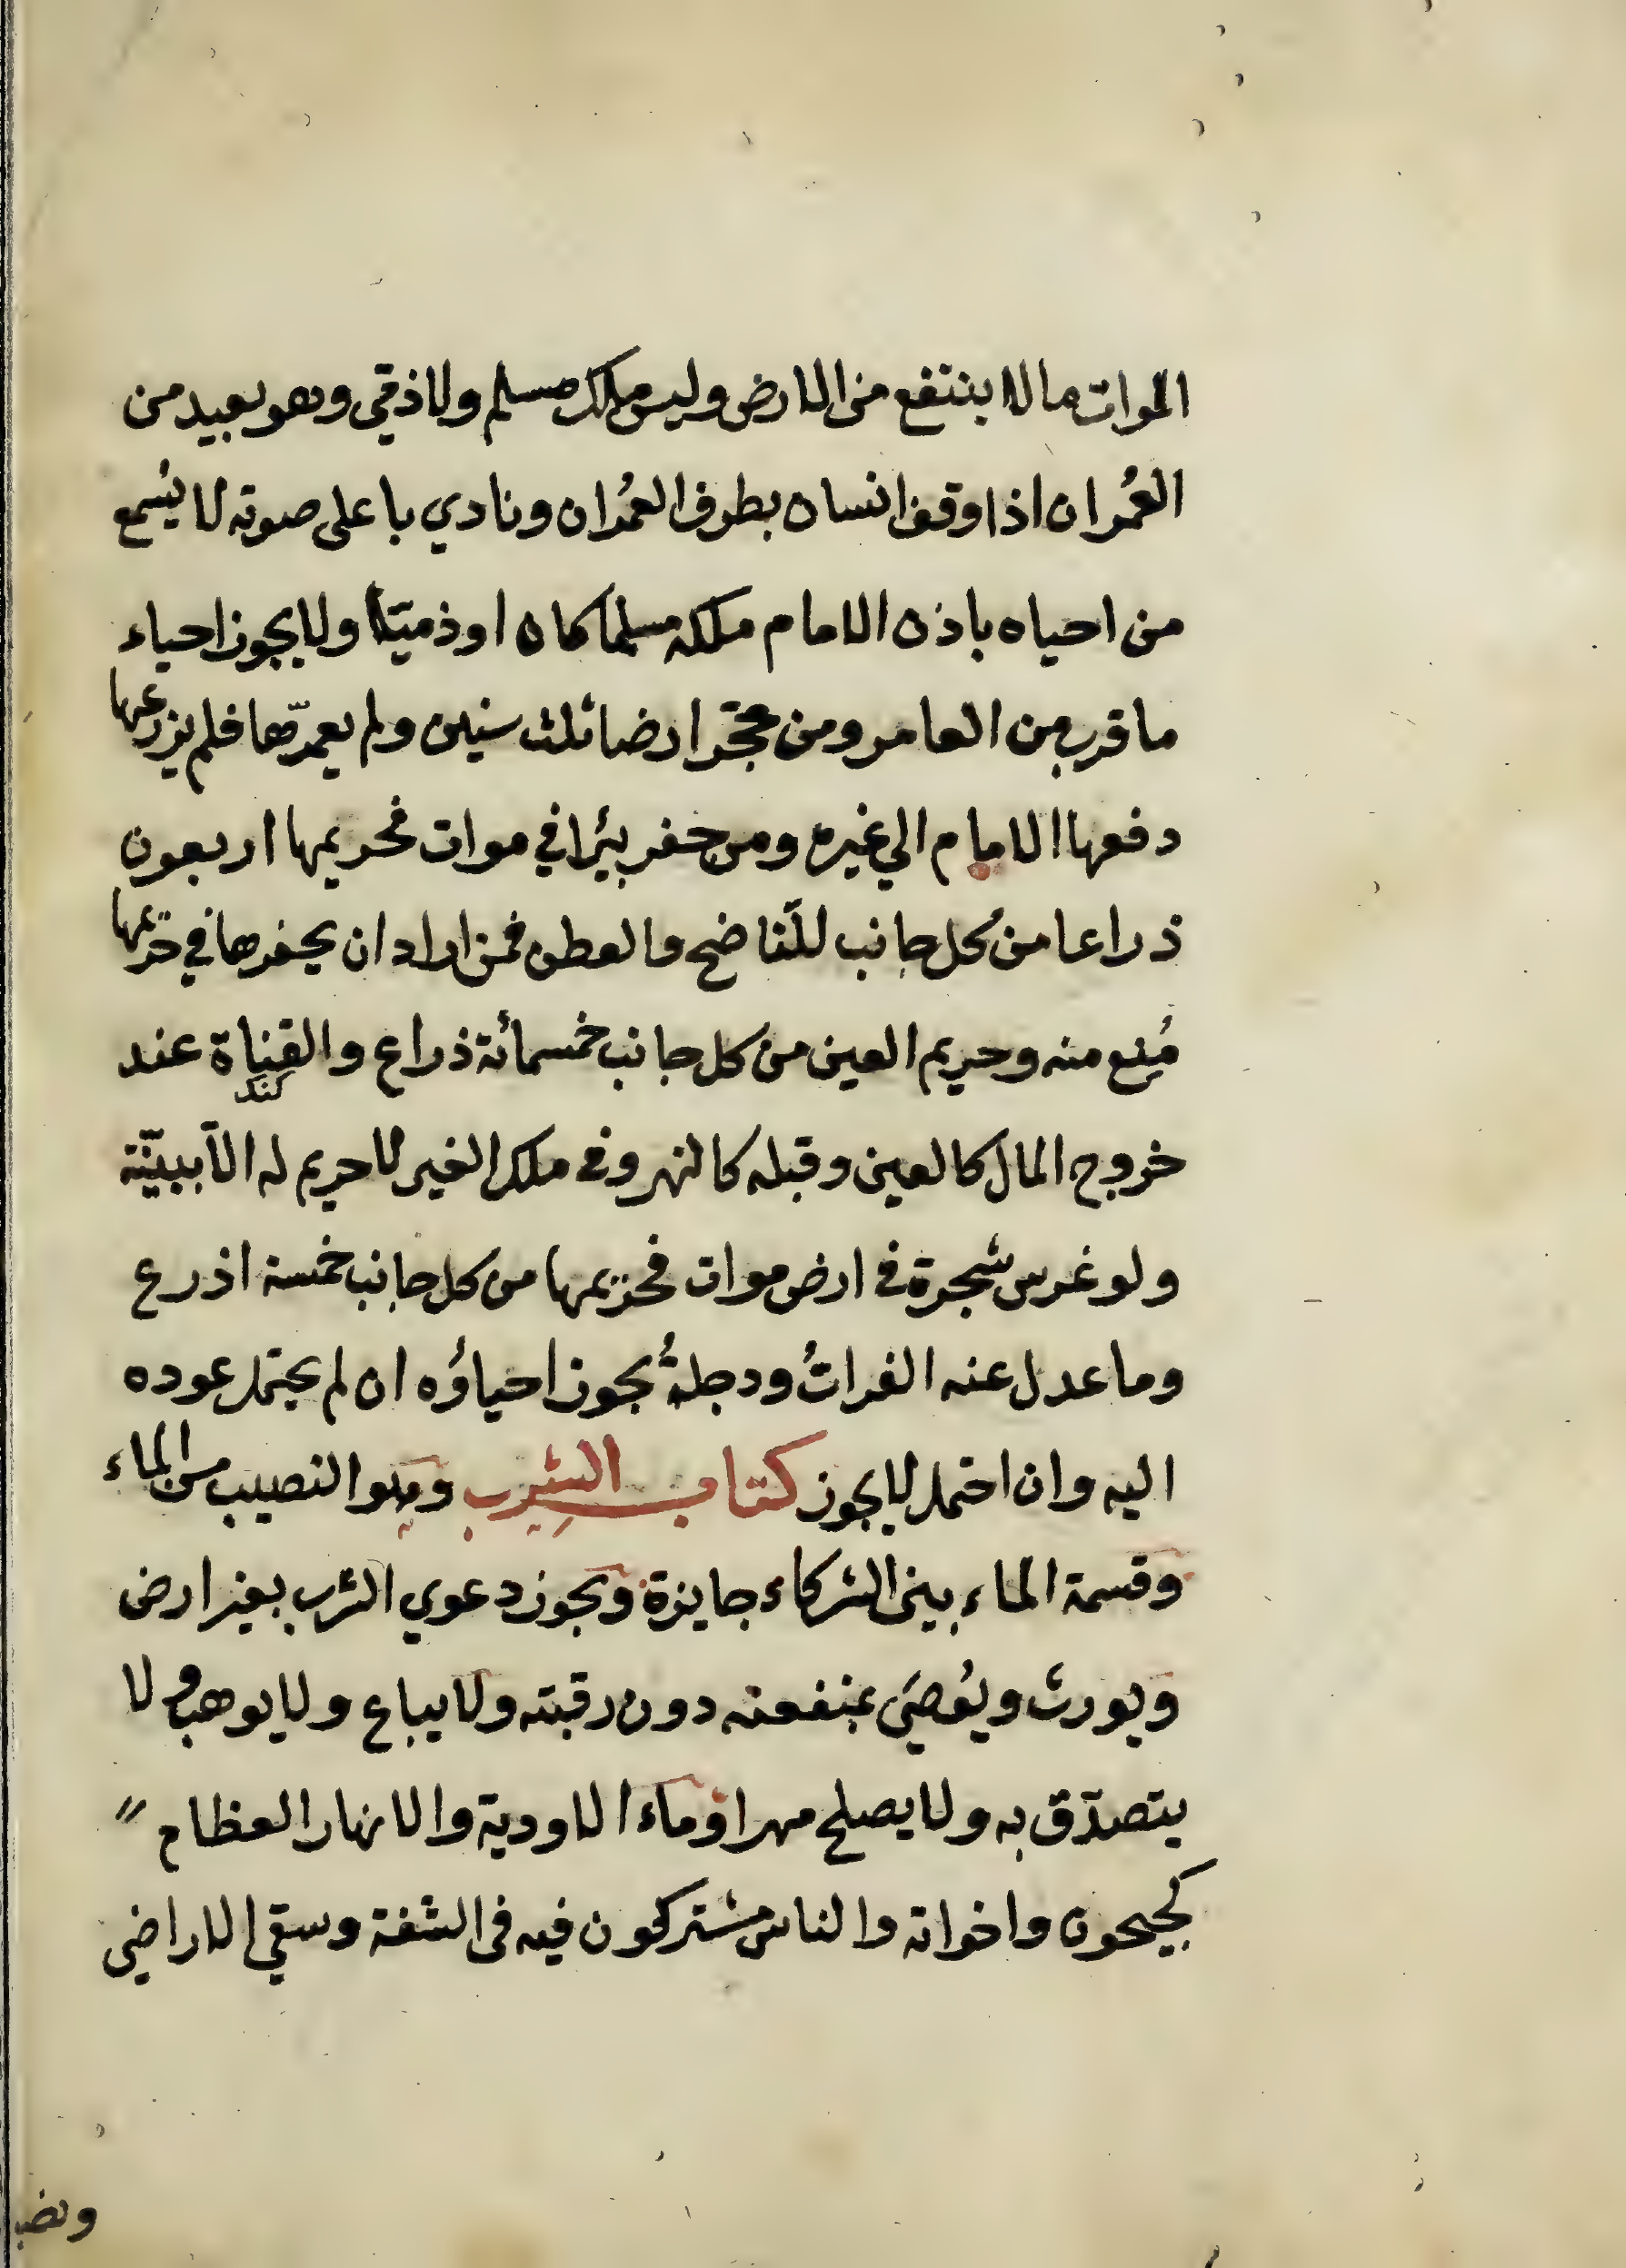 الموات ما لا ينتفع من الارض وليس ملك مسلم ولا ذمّي وهو بعيد من
العُمران اذا وقف انسان بطرف العُمران ونادي باعلى صوته لا يُسمع
من احياه باذن الامام ملكه مسلما كان او ذميّا ولا يجوز احياء
ما قرب من العامر ومن حجّر ارضا ثلث سنين ولم يعمرّها فلم يزرعها
دفعها الامام الي غيره ومن حفر بئرا في موات فحريمها اربعون
ذراعا من كل جانب للنّاضح والعطن فمن اراد ان يحفرها في حريمها
مُنع منه وحريم العين من كل جانب خمسمائة ذراع والقناة عند
كند
خروج المال كالعين وقبله كالنهر وفي ملك الغير لا حريم له الاّ ببيّنة
ولو غرس شجرة في ارض موات فحريمها من كل جانب خمسة اذرع
وما عدل عنه الفراتُ ودجلةُ يجوز احياؤه ان لم يحتمل عوده
اليه وان احتمل لا يجوز كتاب الشِرب وهو النصيب من الماء
وقسمة الماء بين الشركاء جايزة ويجوز دعوي الشرب بغير ارض
ويورث ويُوصَي بمنفعته دون رقبته ولا يباع ولا يوهب ولا
يتصدّق به ولا يصلح مهرا وماء الاودية والانهار العظام〃
كجيحون واخواته والناس مشتركون فيه في الشفة وسقي الاراضي